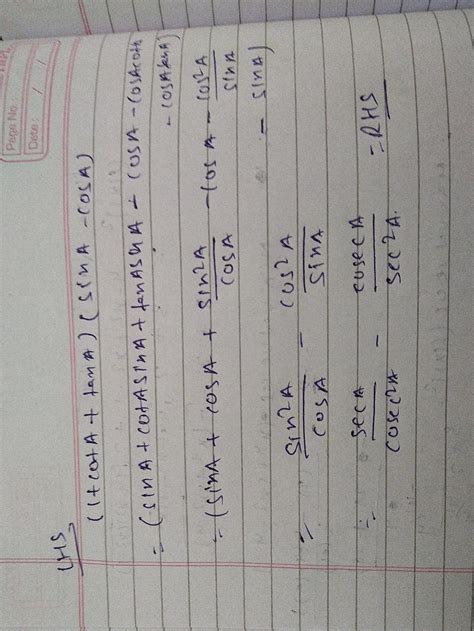 Page No.
Date: / /
LHS
(1+cotA + tanA) (sinA - cosA)
= (sinA + cotA sinA + tanA sinA - cosA - cosA cotA
- cosA tanA)
= (sinA + cosA + sin²A/cosA - cosA - cos²A/sinA
- sinA)
= sin²A/cosA - cos²A/sinA
= secA/cosec²A - cosecA/sec²A. = RHS